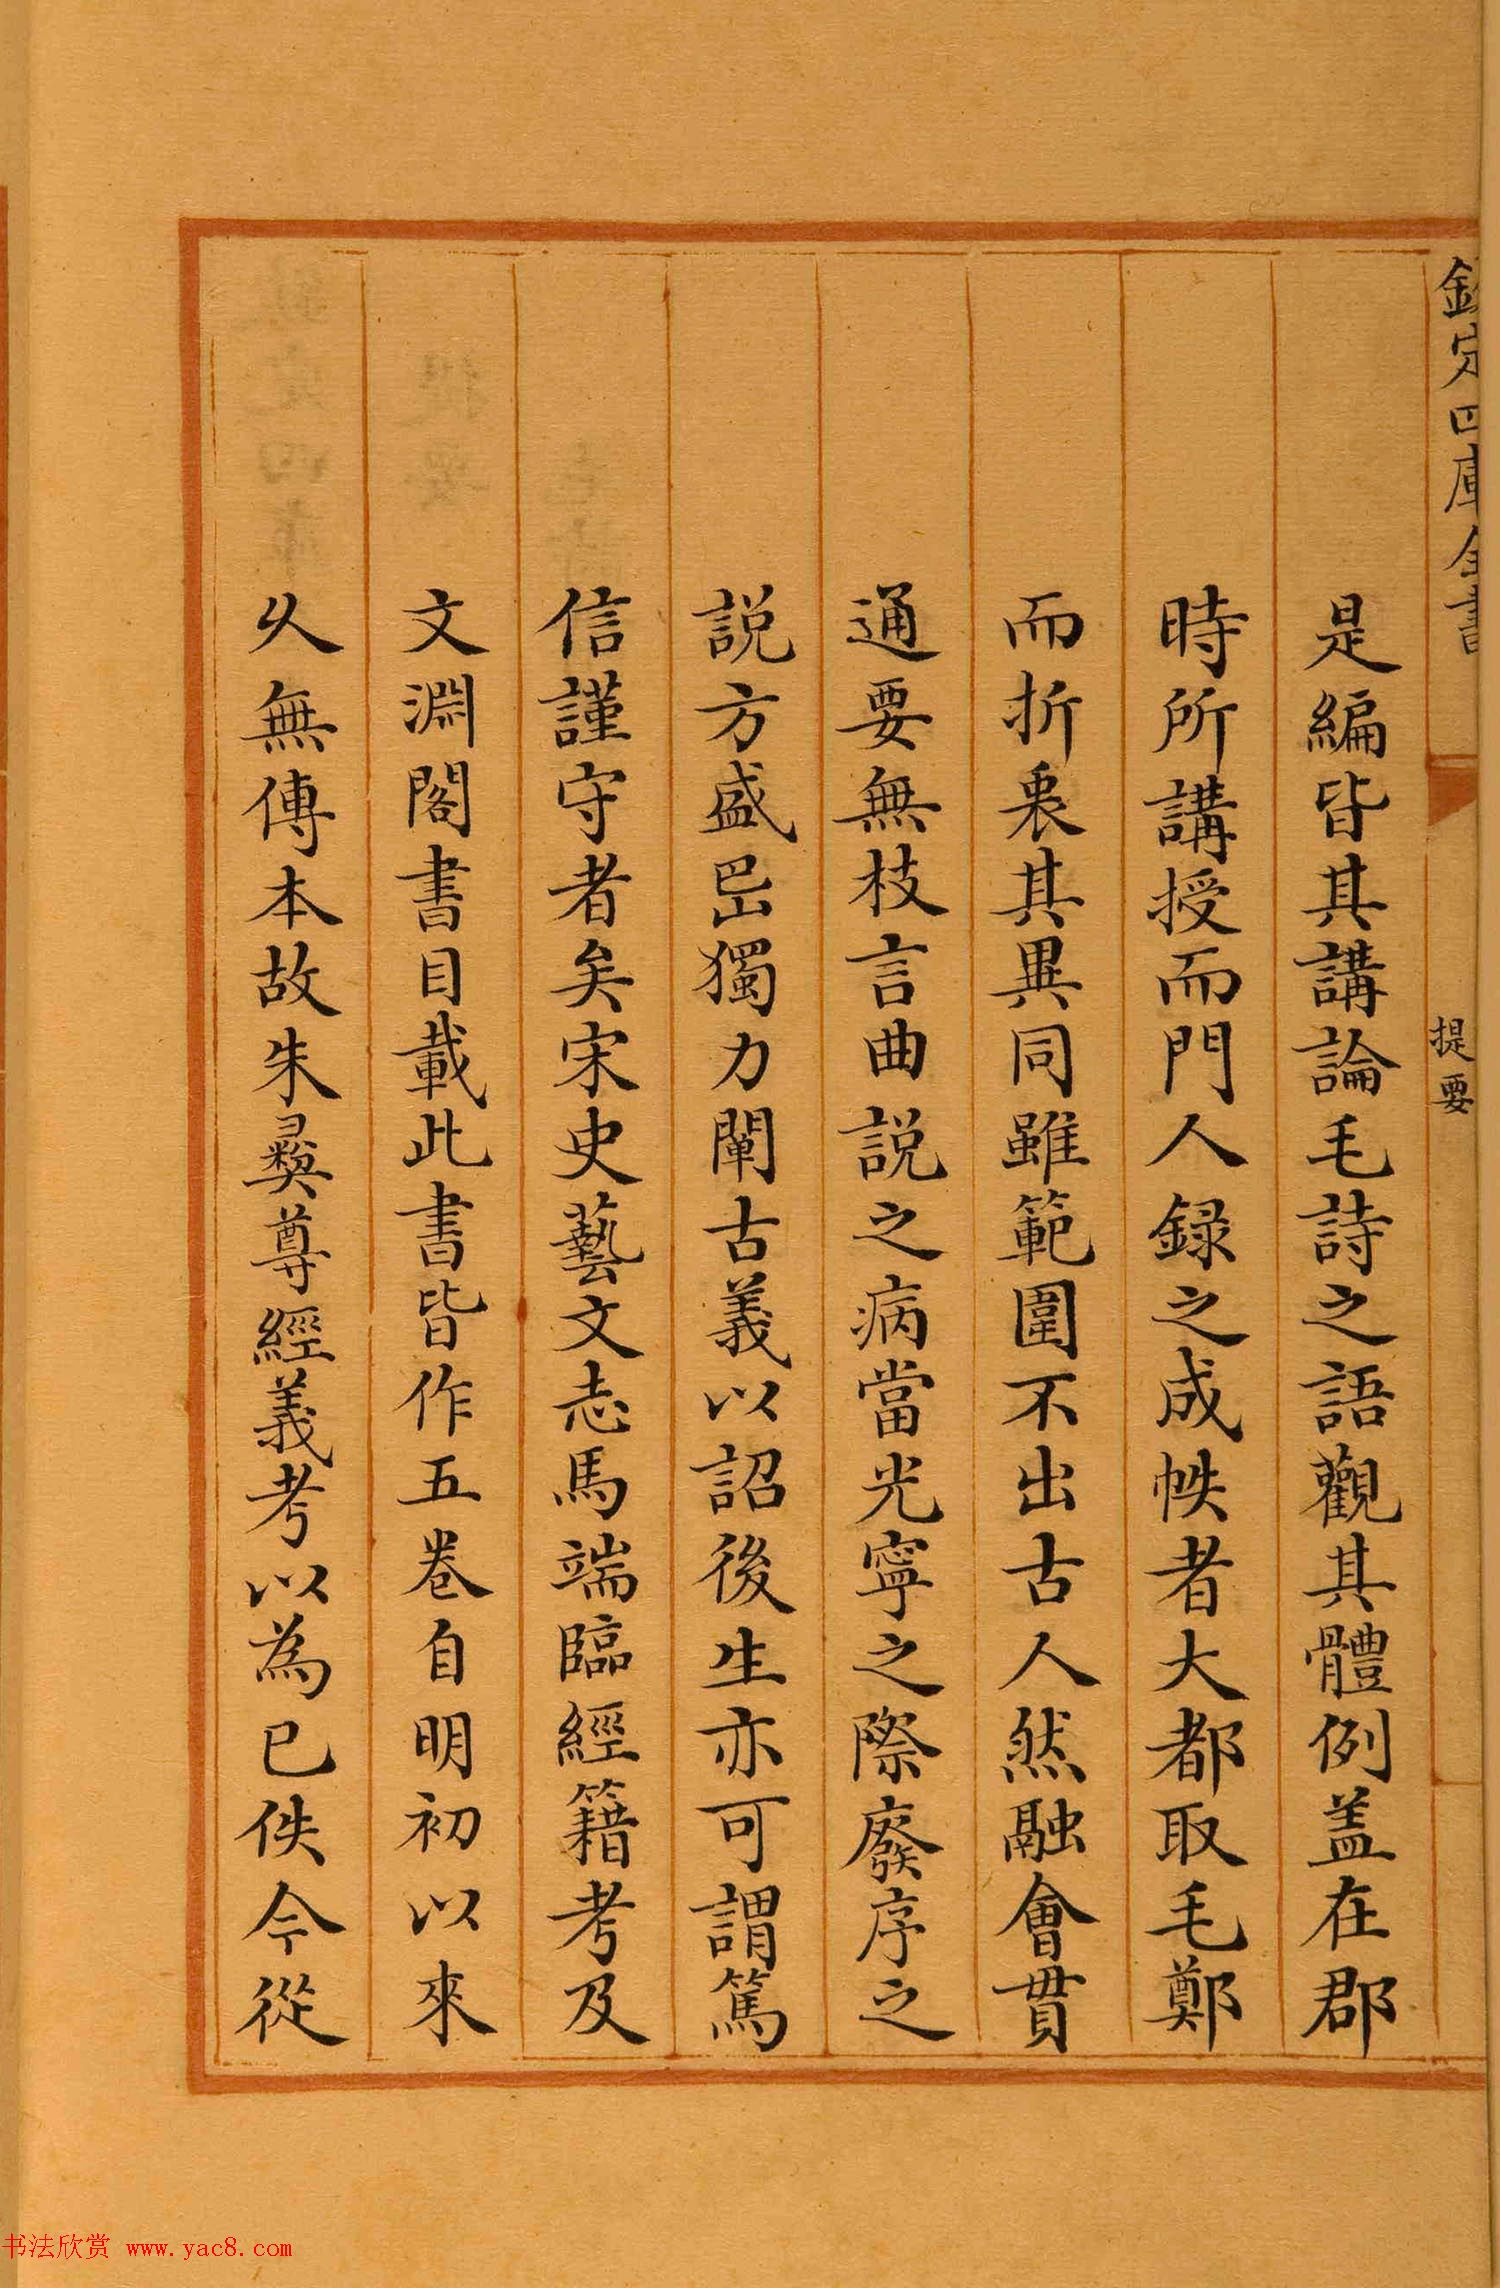 欽定四庫全書
提要
是編皆其講論毛詩之語觀其體例盖在郡
時所講授而門人録之成帙者大都取毛鄭
而折衷其異同雖範圍不出古人然融會貫
通要無枝言曲説之病當光寧之際廢序之
説方盛昌出獨力闡古義以詔後生亦可謂篤
信謹守者矣宋史藝文志馬端臨經籍考及
文淵閣書目載此書皆作五卷自明初以來
久無傳本故朱彛尊經義考以為已佚今從
书法欣赏 www.yac8.com